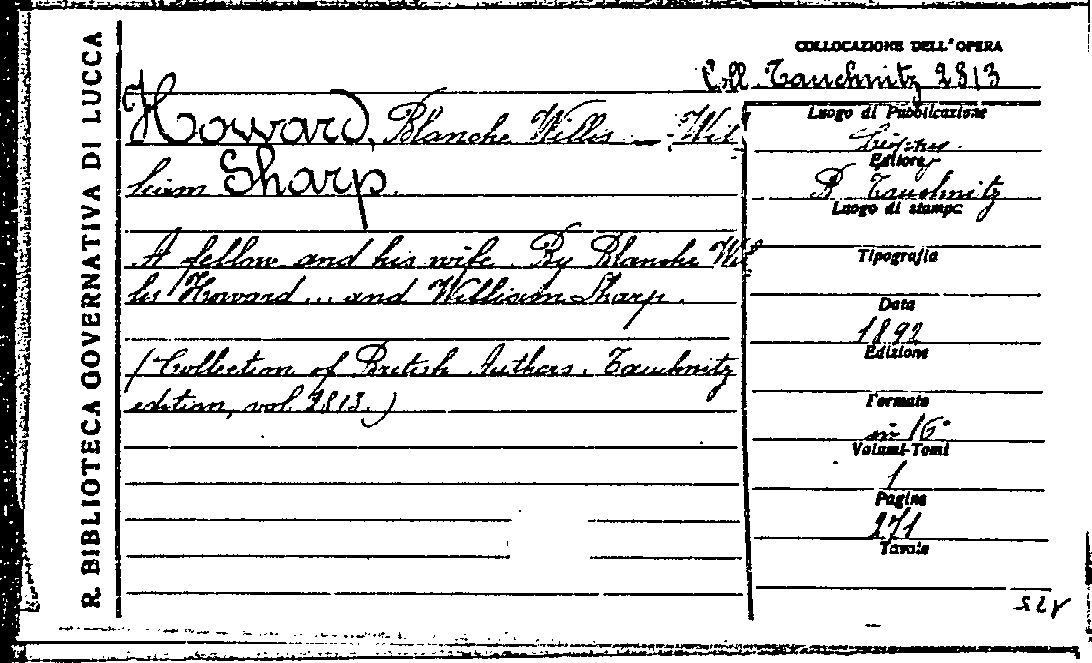 R. BIBLIOTECA GOVERNATIVA DI LUCCA
COLLOCAZIONE DELL'OPERA
Coll. Tauchnitz 2813
Howard, Blanche Willis — Wil
liam Sharp.
A fellow and his wife. By Blanche Wil
lis Howard... and William Sharp.
(Collection of British Authors. Tauchnitz
edition, vol. 2813.)
Luogo di Pubblicazione
Editore
B. Tauchnitz
Luogo di stampa
Tipografia
Data
1892
Edizione
Formato
in 16°
Volumi-Tomi
1
Pagine
271
Tavole